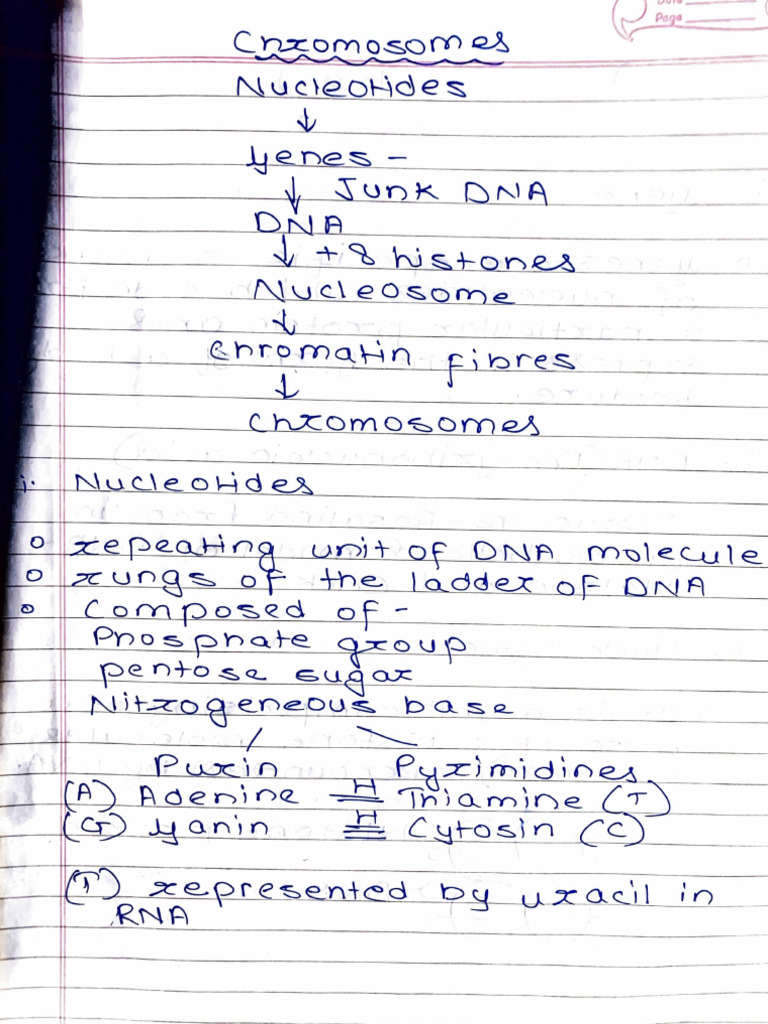 Page
Chromosomes
Nucleotides
↓
genes -
↓ Junk DNA
DNA
↓ + 8 histones
Nucleosome
↓
Chromatin fibres
↓
Chromosomes
i. Nucleotides
o repeating unit of DNA molecule
o rungs of the ladder of DNA
o Composed of -
Phosphate group
pentose sugar
Nitrogeneous base
Purin Pyrimidines
(A) Adenine =H= Thiamine (T)
(G) Guanin ≡H≡ Cytosin (C)
(T) represented by uracil in
RNA